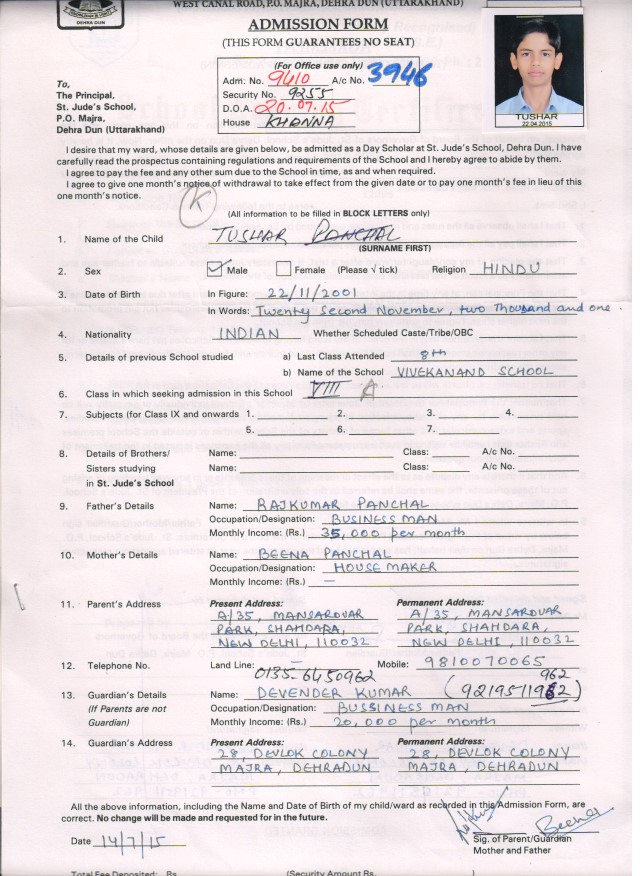 WEST CANAL ROAD, P.O. MAJRA, DEHRA DUN (UTTARAKHAND)
DEHRA DUN
ADMISSION FORM
(THIS FORM GUARANTEES NO SEAT)
(For Office use only)
Adm. No. 9410 A/c No. 3946
Security No. 9255
D.O.A. 20.07.15
House KHANNA
TUSHAR
22.04.2015
To,
The Principal,
St. Jude's School,
P.O. Majra,
Dehra Dun (Uttarakhand)
I desire that my ward, whose details are given below, be admitted as a Day Scholar at St. Jude's School, Dehra Dun. I have
carefully read the prospectus containing regulations and requirements of the School and I hereby agree to abide by them.
I agree to pay the fee and any other sum due to the School in time, as and when required.
I agree to give one month's notice of withdrawal to take effect from the given date or to pay one month's fee in lieu of this
one month's notice.
K
(All information to be filled in BLOCK LETTERS only)
1. Name of the Child TUSHAR PANCHAL
(SURNAME FIRST)
2. Sex Male Female (Please √ tick) Religion HINDU
3. Date of Birth In Figure: 22/11/2001
In Words: Twenty Second November, two Thousand and one.
4. Nationality INDIAN Whether Scheduled Caste/Tribe/OBC
5. Details of previous School studied a) Last Class Attended 8th
b) Name of the School VIVEKANAND SCHOOL
6. Class in which seeking admission in this School VIII A
7. Subjects (for Class IX and onwards 1. 2. 3. 4.
5. 6. 7.
8. Details of Brothers/ Name: Class: A/c No.
Sisters studying Name: Class: A/c No.
in St. Jude's School
9. Father's Details Name: RAJKUMAR PANCHAL
Occupation/Designation: BUSINESS MAN
Monthly Income: (Rs.) 35,000 per month
10. Mother's Details Name: BEENA PANCHAL
Occupation/Designation: HOUSE MAKER
Monthly Income: (Rs.) —
11. Parent's Address Present Address: Permanent Address:
A/35, MANSAROVAR A/35, MANSAROVAR
PARK, SHAHDARA, PARK, SHAHDARA,
NEW DELHI, 110032 NEW DELHI, 110032
12. Telephone No. Land Line: — Mobile: 9810070065
0135-6450962 962
13. Guardian's Details Name: DEVENDER KUMAR (9219571962)
(If Parents are not Occupation/Designation: BUSSINESS MAN
Guardian) Monthly Income: (Rs.) 20,000 per month
14. Guardian's Address Present Address: Permanent Address:
28, DEVLOK COLONY 28, DEVLOK COLONY
MAJRA, DEHRADUN MAJRA, DEHRADUN
All the above information, including the Name and Date of Birth of my child/ward as recorded in this Admission Form, are
correct. No change will be made and requested for in the future.
Beena
Date 14/7/15 Sig. of Parent/Guardian
Mother and Father
Total Fee Deposited: Rs. (Security Amount Rs. )